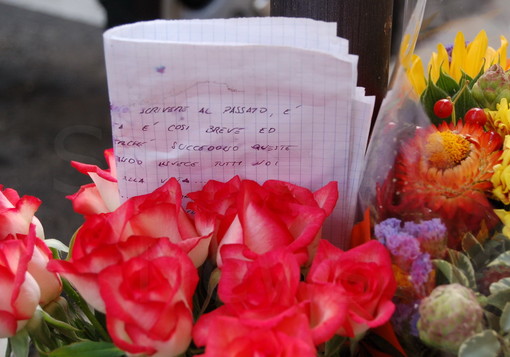 SCRIVERE AL PASSATO, E'
A E' COSI BREVE ED
SUCCEDONO QUESTE
INVECE TUTTI NOI
ALLA VITA